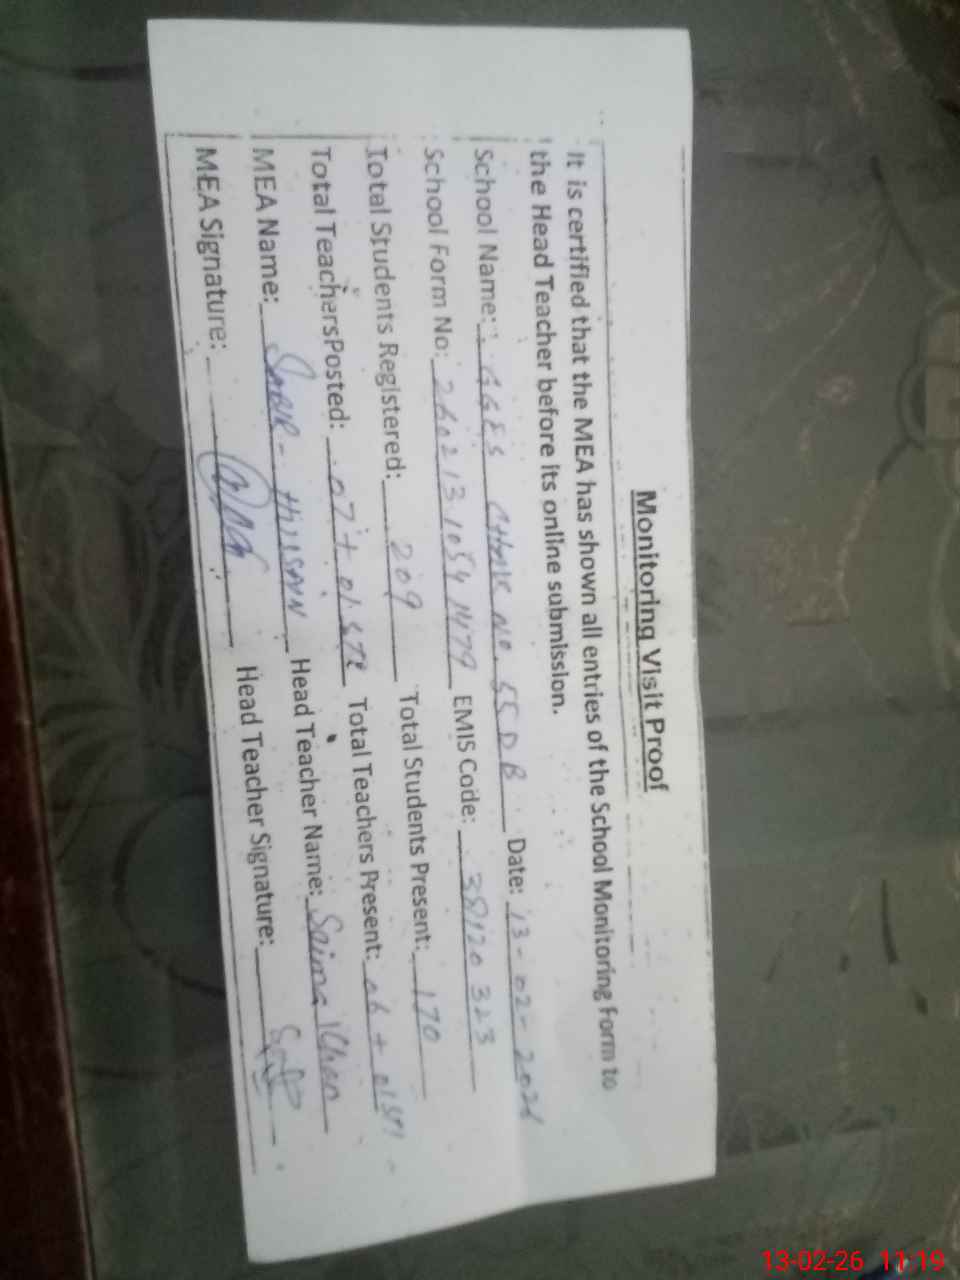 Monitoring Visit Proof
It is certified that the MEA has shown all entries of the School Monitoring Form to
the Head Teacher before its online submission.
School Name: GGES Chak No. 55 DB Date: 13-02-2026
School Form No: 2602131054 1479 EMIS Code: 38120323
Total Students Registered: 209 Total Students Present: 170
Total TeachersPosted: 07 + 01 STI Total Teachers Present: 06 + 01 STI
MEA Name: Sabir Hussain Head Teacher Name: Saima Khan
MEA Signature: Head Teacher Signature:
13-02-26 11:19